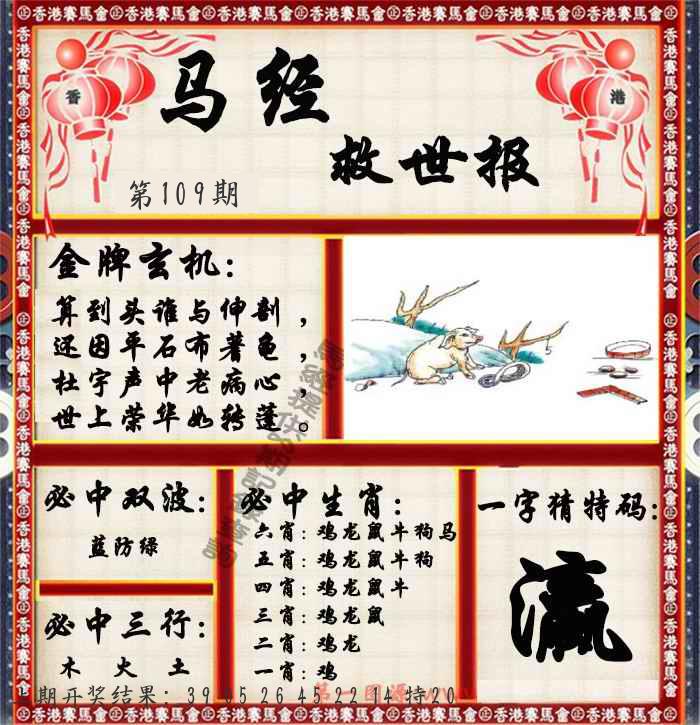 香港賽馬會
香 港
马经
救世报
第109期
金牌玄机：
算到头谁与伸剖，
还因平石布蓍龟，
杜宇声中老病心，
世上荣华如转蓬。
必中双波：
蓝防绿
必中三行：
木 火 土
必中生肖：
六肖：鸡龙鼠牛狗马
五肖：鸡龙鼠牛狗
四肖：鸡龙鼠牛
三肖：鸡龙鼠
二肖：鸡龙
一肖：鸡
一字猜特码：
瀛
期开奖结果：39 05 26 45 22 14 特20